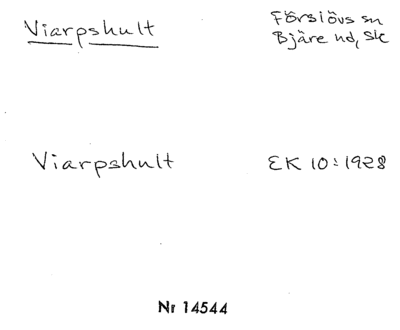 Viarpshult
Förslövs sn
Bjäre hd, Sk
Viarpshult
EK 10:1928
Nr 14544